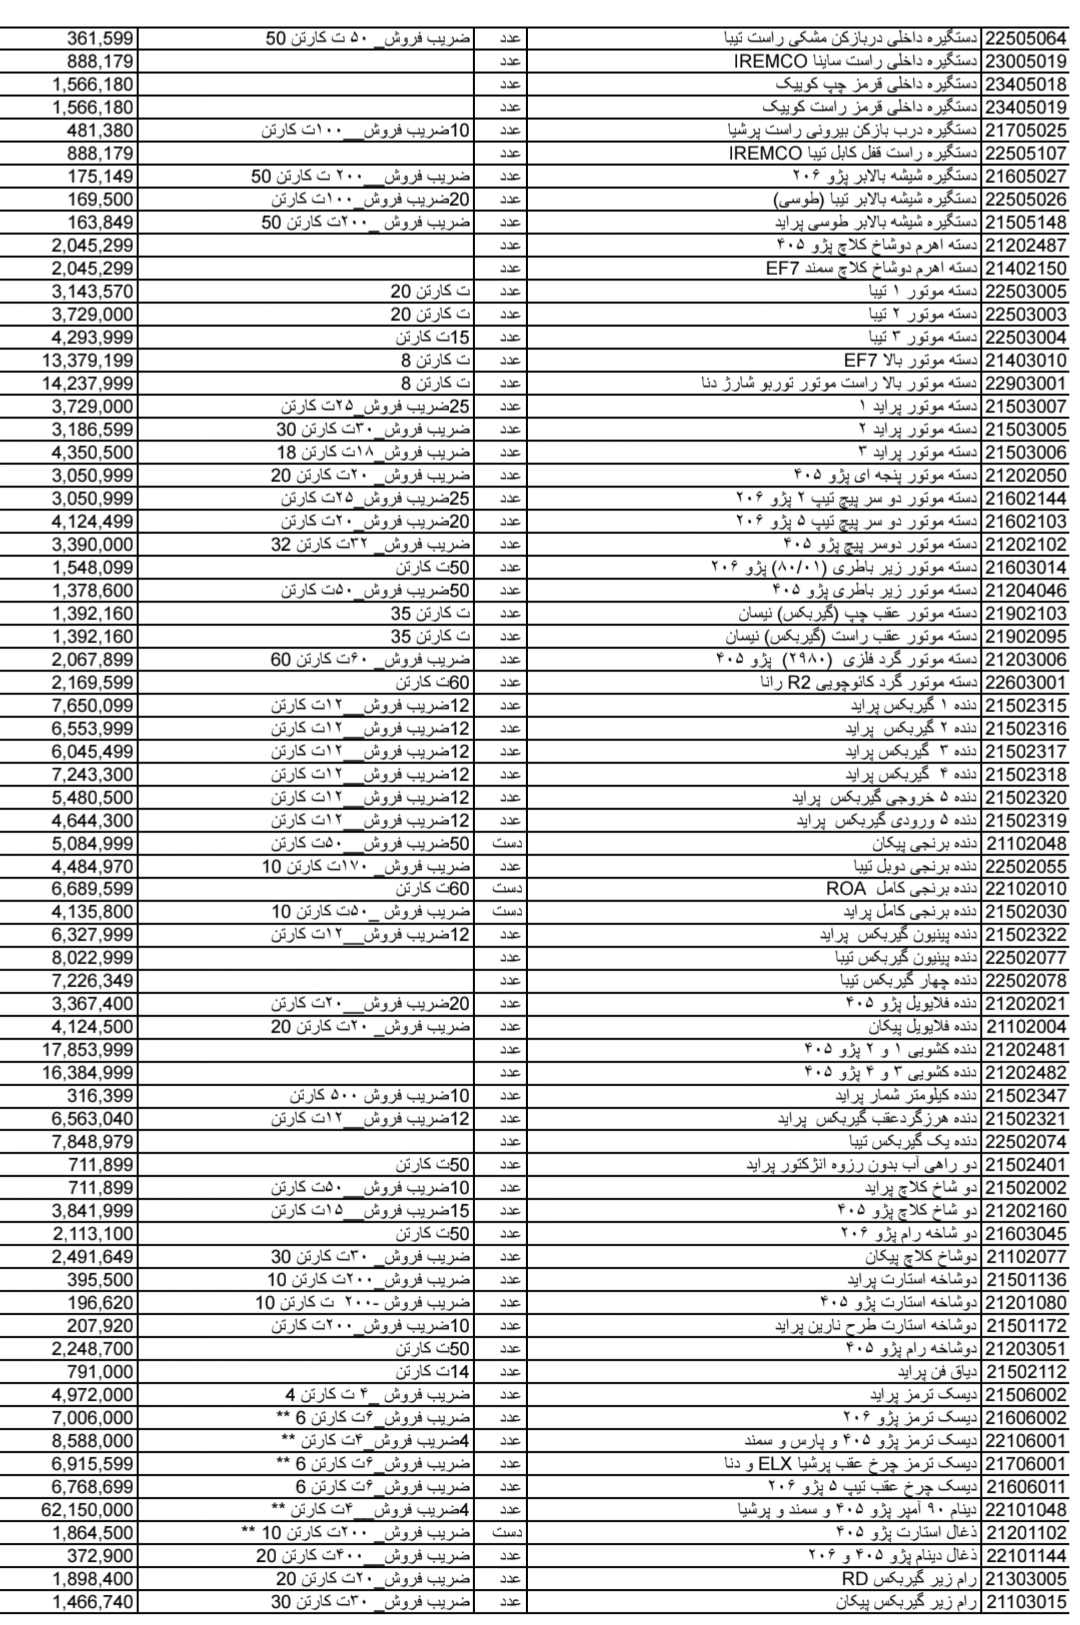 22505064 دستگیره داخلی دربازکن مشکی راست تیبا عدد ضریب فروش_ ۵۰ ت کارتن 50 361,599
23005019 دستگیره داخلی راست ساینا IREMCO عدد 888,179
23405018 دستگیره داخلی قرمز چپ کوییک عدد 1,566,180
23405019 دستگیره داخلی قرمز راست کوییک عدد 1,566,180
21705025 دستگیره درب بازکن بیرونی راست پرشیا عدد 10ضریب فروش__۱۰۰ت کارتن 481,380
22505107 دستگیره راست قفل کابل تیبا IREMCO عدد 888,179
21605027 دستگیره شیشه بالابر پژو ۲۰۶ عدد ضریب فروش__۲۰۰ ت کارتن 50 175,149
22505026 دستگیره شیشه بالابر تیبا (طوسی) عدد 20ضریب فروش_۱۰۰ت کارتن 169,500
21505148 دستگیره شیشه بالابر طوسی پراید عدد ضریب فروش _۲۰۰ت کارتن 50 163,849
21202487 دسته اهرم دوشاخ کلاچ پژو ۴۰۵ عدد 2,045,299
21402150 دسته اهرم دوشاخ کلاچ سمند EF7 عدد 2,045,299
22503005 دسته موتور ۱ تیبا عدد ت کارتن 20 3,143,570
22503003 دسته موتور ۲ تیبا عدد ت کارتن 20 3,729,000
22503004 دسته موتور ۳ تیبا عدد 15ت کارتن 4,293,999
21403010 دسته موتور بالا EF7 عدد ت کارتن 8 13,379,199
22903001 دسته موتور بالا راست موتور توربو شارژ دنا عدد ت کارتن 8 14,237,999
21503007 دسته موتور پراید ۱ عدد 25ضریب فروش_۲۵ت کارتن 3,729,000
21503005 دسته موتور پراید ۲ عدد ضریب فروش_۳۰ت کارتن 30 3,186,599
21503006 دسته موتور پراید ۳ عدد ضریب فروش_۱۸ت کارتن 18 4,350,500
21202050 دسته موتور پنجه ای پژو ۴۰۵ عدد ضریب فروش_۲۰ت کارتن 20 3,050,999
21602144 دسته موتور دو سر پیچ تیپ ۲ پژو ۲۰۶ عدد 25ضریب فروش_۲۵ت کارتن 3,050,999
21602103 دسته موتور دو سر پیچ تیپ ۵ پژو ۲۰۶ عدد 20ضریب فروش_۲۰ت کارتن 4,124,499
21202102 دسته موتور دوسر پیچ پژو ۴۰۵ عدد ضریب فروش_ ۳۲ت کارتن 32 3,390,000
21603014 دسته موتور زیر باطری (۸۰/۰۱) پژو ۲۰۶ عدد 50ت کارتن 1,548,099
21204046 دسته موتور زیر باطری پژو ۴۰۵ عدد 50ضریب فروش_۵۰ت کارتن 1,378,600
21902103 دسته موتور عقب چپ (گیربکس) نیسان عدد ت کارتن 35 1,392,160
21902095 دسته موتور عقب راست (گیربکس) نیسان عدد ت کارتن 35 1,392,160
21203006 دسته موتور گرد فلزی (۲۹۸۰) پژو ۴۰۵ عدد ضریب فروش_ ۶۰ت کارتن 60 2,067,899
22603001 دسته موتور گرد کائوچویی R2 رانا عدد 60ت کارتن 2,169,599
21502315 دنده ۱ گیربکس پراید عدد 12ضریب فروش__۱۲ت کارتن 7,650,099
21502316 دنده ۲ گیربکس پراید عدد 12ضریب فروش__۱۲ت کارتن 6,553,999
21502317 دنده ۳ گیربکس پراید عدد 12ضریب فروش__۱۲ت کارتن 6,045,499
21502318 دنده ۴ گیربکس پراید عدد 12ضریب فروش__۱۲ت کارتن 7,243,300
21502320 دنده ۵ خروجی گیربکس پراید عدد 12ضریب فروش__۱۲ت کارتن 5,480,500
21502319 دنده ۵ ورودی گیربکس پراید عدد 12ضریب فروش__۱۲ت کارتن 4,644,300
21102048 دنده برنجی پیکان دست 50ضریب فروش__۵۰ت کارتن 5,084,999
22502055 دنده برنجی دوبل تیبا عدد ضریب فروش_ ۱۷۰ت کارتن 10 4,484,970
22102010 دنده برنجی کامل ROA دست 60ت کارتن 6,689,599
21502030 دنده برنجی کامل پراید دست ضریب فروش _۵۰ت کارتن 10 4,135,800
21502322 دنده پینیون گیربکس پراید عدد 12ضریب فروش__۱۲ت کارتن 6,327,999
22502077 دنده پینیون گیربکس تیبا عدد 8,022,999
22502078 دنده چهار گیربکس تیبا عدد 7,226,349
21202021 دنده فلایویل پژو ۴۰۵ عدد 20ضریب فروش__۲۰ت کارتن 3,367,400
21102004 دنده فلایویل پیکان عدد ضریب فروش_ ۲۰ت کارتن 20 4,124,500
21202481 دنده کشویی ۱ و ۲ پژو ۴۰۵ عدد 17,853,999
21202482 دنده کشویی ۳ و ۴ پژو ۴۰۵ عدد 16,384,999
21502347 دنده کیلومتر شمار پراید عدد 10ضریب فروش ۵۰۰ کارتن 316,399
21502321 دنده هرزگردعقب گیربکس پراید عدد 12ضریب فروش__۱۲ت کارتن 6,563,040
22502074 دنده یک گیربکس تیبا عدد 7,848,979
21502401 دو راهی آب بدون رزوه انژکتور پراید عدد 50ت کارتن 711,899
21502002 دو شاخ کلاچ پراید عدد 10ضریب فروش_ ۵۰ت کارتن 711,899
21202160 دو شاخ کلاچ پژو ۴۰۵ عدد 15ضریب فروش__۱۵ت کارتن 3,841,999
21603045 دو شاخه رام پژو ۲۰۶ عدد 50ت کارتن 2,113,100
21102077 دوشاخ کلاچ پیکان عدد ضریب فروش_ ۳۰ت کارتن 30 2,491,649
21501136 دوشاخه استارت پراید عدد ضریب فروش_۲۰۰ت کارتن 10 395,500
21201080 دوشاخه استارت پژو ۴۰۵ عدد ضریب فروش -۲۰۰ ت کارتن 10 196,620
21501172 دوشاخه استارت طرح نارین پراید عدد 10ضریب فروش_۲۰۰ت کارتن 207,920
21203051 دوشاخه رام پژو ۴۰۵ عدد 50ت کارتن 2,248,700
21502112 دیاق فن پراید عدد 14ت کارتن 791,000
21506002 دیسک ترمز پراید عدد ضریب فروش _۴ ت کارتن 4 4,972,000
21606002 دیسک ترمز پژو ۲۰۶ عدد ضریب فروش_۶ت کارتن 6 ** 7,006,000
22106001 دیسک ترمز پژو ۴۰۵ و پارس و سمند عدد 4ضریب فروش_۴ت کارتن ** 8,588,000
21706001 دیسک ترمز چرخ عقب پرشیا ELX و دنا عدد ضریب فروش_۶ت کارتن 6 ** 6,915,599
21606011 دیسک چرخ عقب تیپ ۵ پژو ۲۰۶ عدد ضریب فروش_۶ت کارتن 6 6,768,699
22101048 دینام ۹۰ آمپر پژو ۴۰۵ و سمند و پرشیا عدد 4ضریب فروش__۴ت کارتن ** 62,150,000
21201102 ذغال استارت پژو ۴۰۵ دست ضریب فروش_ ۲۰۰ت کارتن 10 ** 1,864,500
22101144 ذغال دینام پژو ۴۰۵ و ۲۰۶ عدد ضریب فروش__۴۰۰ت کارتن 20 372,900
21303005 رام زیر گیربکس RD عدد ضریب فروش_ ۲۰ت کارتن 20 1,898,400
21103015 رام زیر گیربکس پیکان عدد ضریب فروش_ ۳۰ت کارتن 30 1,466,740